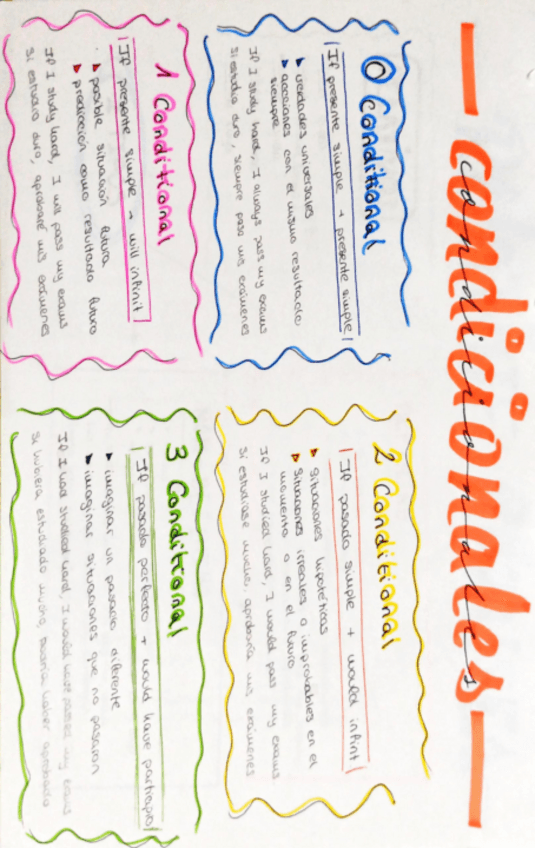 condicionales
0 Conditional
If presente simple + presente simple
verdades universales
acciones con el mismo resultado
siempre
If I study hard, I always pass my exams
Si estudio duro, siempre paso mis exámenes
1 Conditional
If presente simple + will infinit
posible situación futura
predicción como resultado futuro
If I study hard, I will pass my exams
Si estudio duro, aprobaré mis exámenes
2 Conditional
If pasado simple + would infinit
Situaciones hipotéticas
Situaciones irreales o improbables en el
momento o en el futuro
If I studied hard, I would pass my exams
Si estudiase mucho, aprobaría mis exámenes
3 Conditional
If pasado perfecto + would have participio
imaginar un pasado diferente
imaginar situaciones que no pasaron
If I had studied hard, I would have passed my exams
Si hubiera estudiado mucho, podría haber aprobado